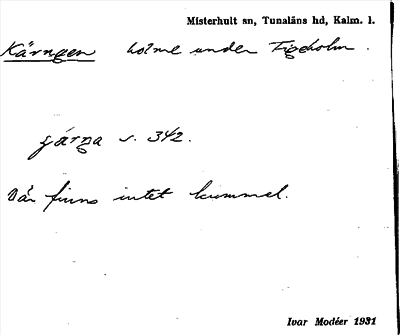 Misterhult sn, Tunaläns hd, Kalm. l.
Kärngen holme under Figeholm.
gárŋa s. 342.
Där finns intet kummel.
Ivar Modéer 1931